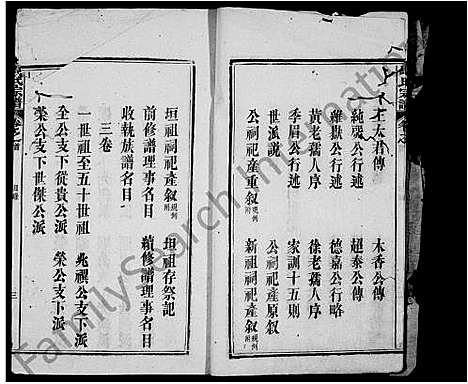 王太君傳　木香公傳
純㷀公行述　超泰公傳
維嶽公行述　德嘉公行略
黃老孺人序　徐老孺人序
季眉公行述　家訓十五則
世派說　公祠祀產原叙
公祠祀產重叙 規例附　新祖祠祀產叙 規例附
垣祖祠祀產叙 規例附　垣祖存祭記
前修譜理事名目　續修譜理事名目
收執族譜名目
三卷
一世祖至五十世祖　兆禩公支下派
全公支下從貴公派　榮公支下派
榮公支下世傑公派
目錄
三
FamilySearch International